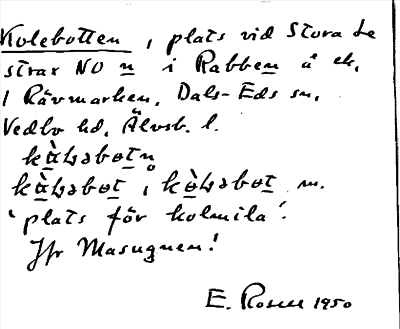 Kolebotten, plats vid Stora Le
strax NO n i Rabben å ek.
1 Rävmarken, Dals-Eds sn,
Vedbo hd, Älvsb. l.
kὰꞎəbøtn̥
kὰꞎəbøt, kὸꞎəbøt m.
'plats för kolmila'.
Jfr Masugnen!
E. Rosell 1950